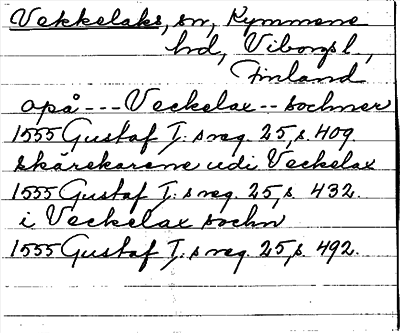 Vekkelaks, sn, Kymmene
hd, Viborgs l.,
Finland
opå --- Veckelax -- sochner
1555 Gustaf I: s reg. 25, s. 409.
skärekarene udi Veckelax
1555 Gustaf I: s reg. 25, s. 432.
i Veckelax sochn
1555 Gustaf I: s reg. 25, s. 492.